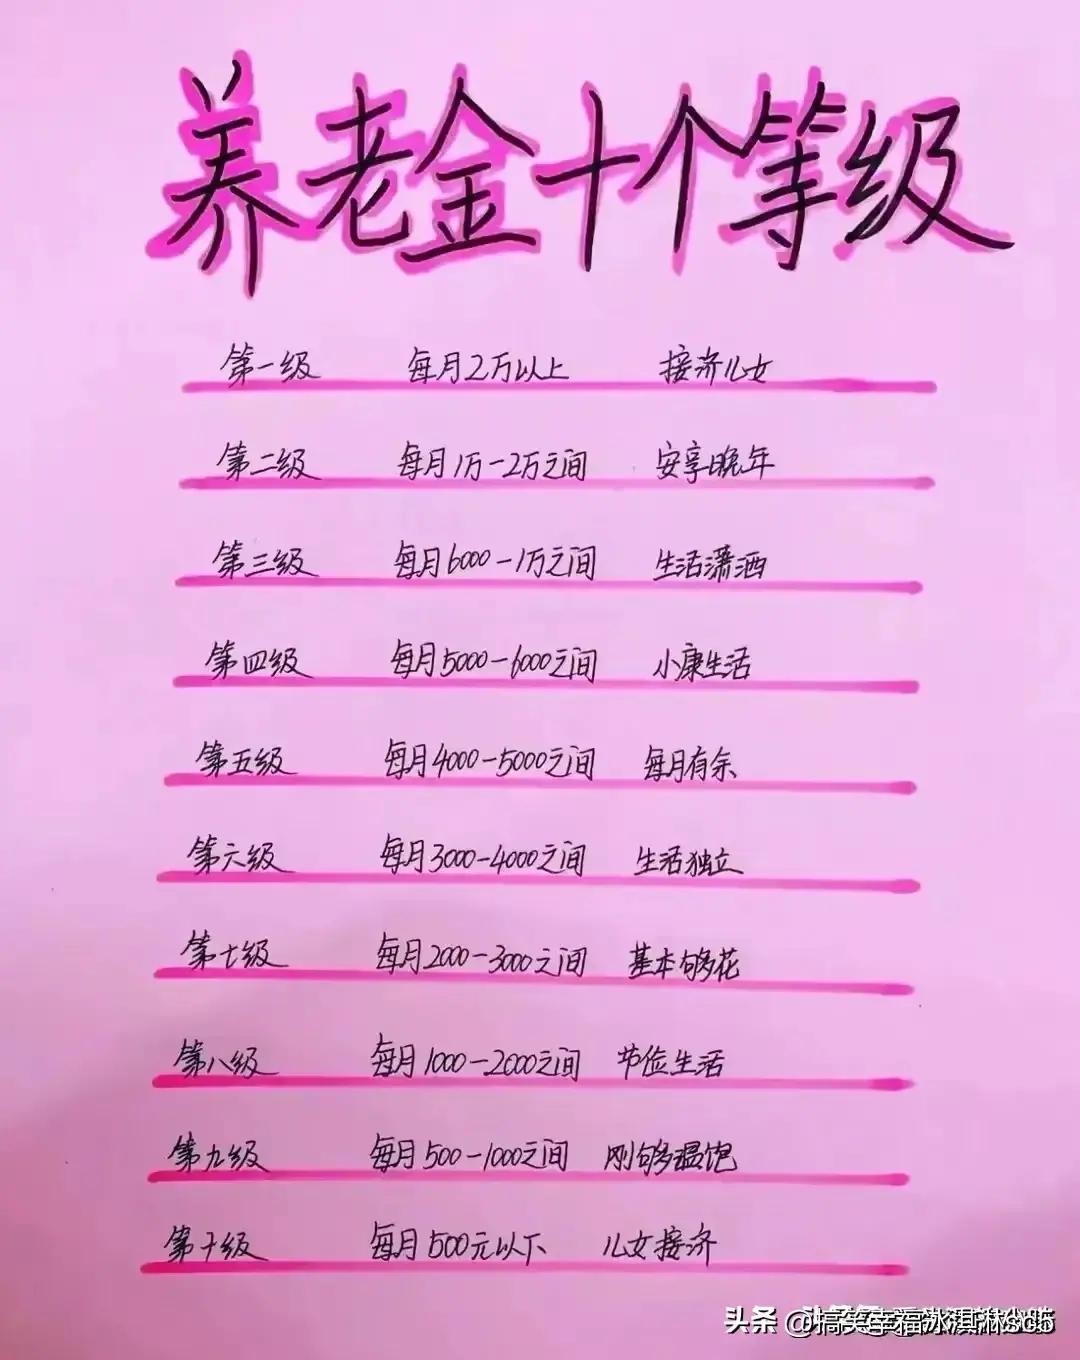 养老金十个等级
第一级 每月2万以上 接济儿女
第二级 每月1万-2万之间 安享晚年
第三级 每月6000-1万之间 生活潇洒
第四级 每月5000-6000之间 小康生活
第五级 每月4000-5000之间 每月有余
第六级 每月3000-4000之间 生活独立
第七级 每月2000-3000之间 基本够花
第八级 每月1000-2000之间 节俭生活
第九级 每月500-1000之间 刚够温饱
第十级 每月500元以下 儿女接济
头条 @搞笑幸福冰淇淋